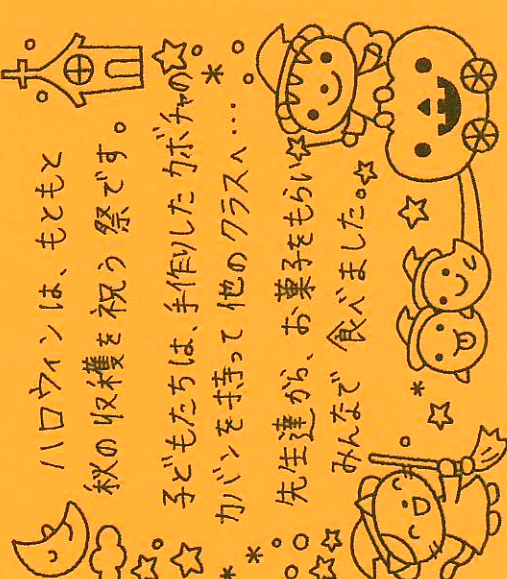 ハロウィンは、もともと
秋の収穫を祝う祭です。
子どもたちは、手作りしたカボチャの
カバンを持って他のクラスへ・・・
先生達から、お菓子をもらい
みんなで食べました。